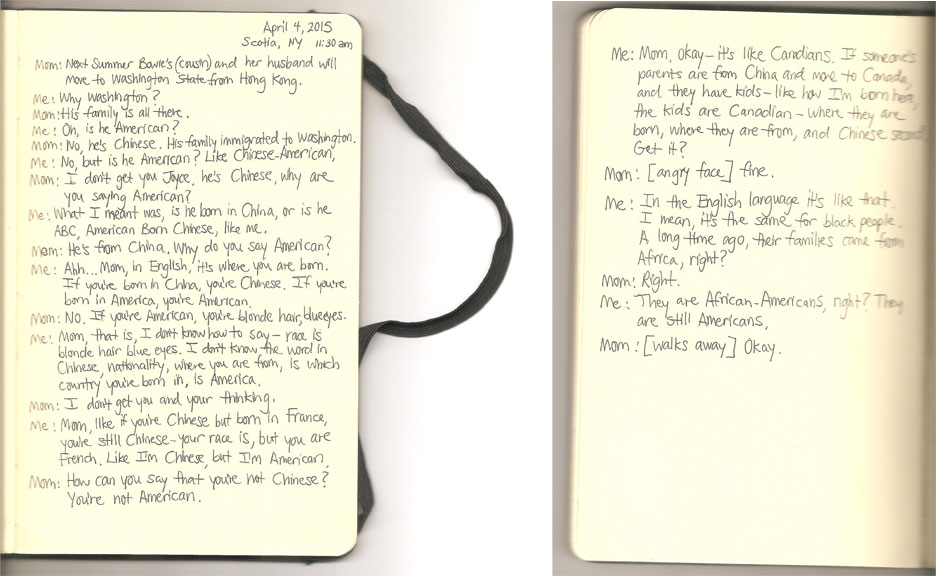 April 4, 2015
Scotia, NY 11:30 am
Mom: Next Summer Bowie's (cousin) and her husband will
move to Washington State from Hong Kong.
Me: Why Washington?
Mom: His family is all there.
Me: Oh, is he American?
Mom: No, he's Chinese. His family immigrated to Washington.
Me: No, but is he American? Like Chinese-American,
Mom: I don't get you Joyce, he's Chinese, why are
you saying American?
Me: What I meant was, is he born in China, or is he
ABC, American Born Chinese, like me.
Mom: He's from China. Why do you say American?
Me: Ahh... Mom, in English, it's where you are born.
If you're born in China, you're Chinese. If you're
born in America, you're American.
Mom: NO. If you're American, you're blonde hair, blue eyes.
Me: Mom, that is, I don't know how to say – race is
blonde hair blue eyes. I don't know the word in
Chinese, nationality, where you are from, is which
country you're born in, is America.
Mom: I don't get you and your thinking.
Me: Mom, like if you're Chinese but born in France,
you're still Chinese – your race is, but you are
French. Like I'm Chinese, but I'm American.
Mom: How can you say that you're not Chinese?
You're not American.
Me: Mom, okay – it's like Canadians. If someone's
parents are from China and move to Canada,
and they have kids – like how I'm born here,
the kids are Canadian – where they are
born, where they are from, and Chinese second.
Get it?
Mom: [angry face] fine.
Me: In the English language it's like that.
I mean, it's the same for black people.
A long time ago, their families came from
Africa, right?
Mom: Right.
Me: They are African-Americans, right? They
are still Americans.
Mom: [walks away] Okay.